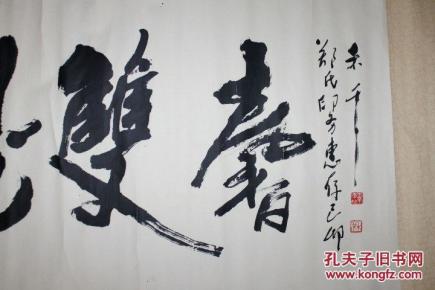 雙馨
郑氏印芳惠存己卯
孔夫子旧书网
www.kongfz.com